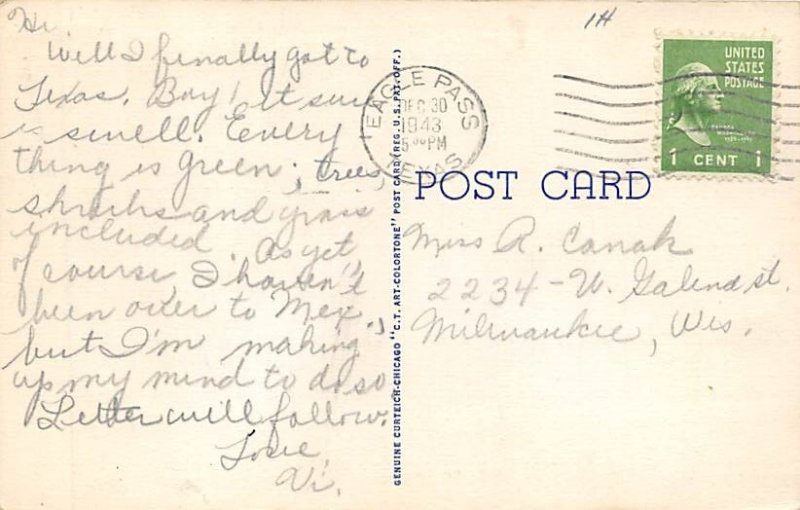 Hi
Well I finally got to
Texas. Boy! It sure
is swell. Every
thing is green; trees,
shrubs and grass
included. As yet,
of course, I haven't
been over to Mex.,
but I'm making
up my mind to do so
Letter will follow.
Love,
Vi.
GENUINE CURTEICH-CHICAGO "C.T. ART-COLORTONE" POST CARD (REG. U.S. PAT. OFF.)
1H
EAGLE PASS
DEC 30
1943
5 PM
TEXAS
UNITED
STATES
POSTAGE
1 CENT 1
POST CARD
Miss R. Canak
2234 - W. Galena st.
Milwaukee, Wis.